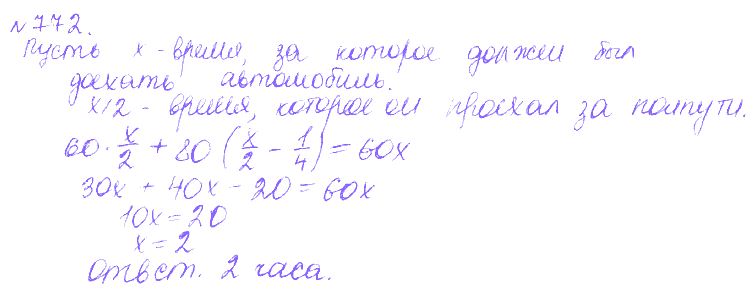 №772.
Пусть x - время, за которое должен был
доехать автомобиль.
x/2 - время, которое он проехал за полпути.
60 · x/2 + 80 (x/2 - 1/4) = 60x
30x + 40x - 20 = 60x
10x = 20
x = 2
Ответ. 2 часа.